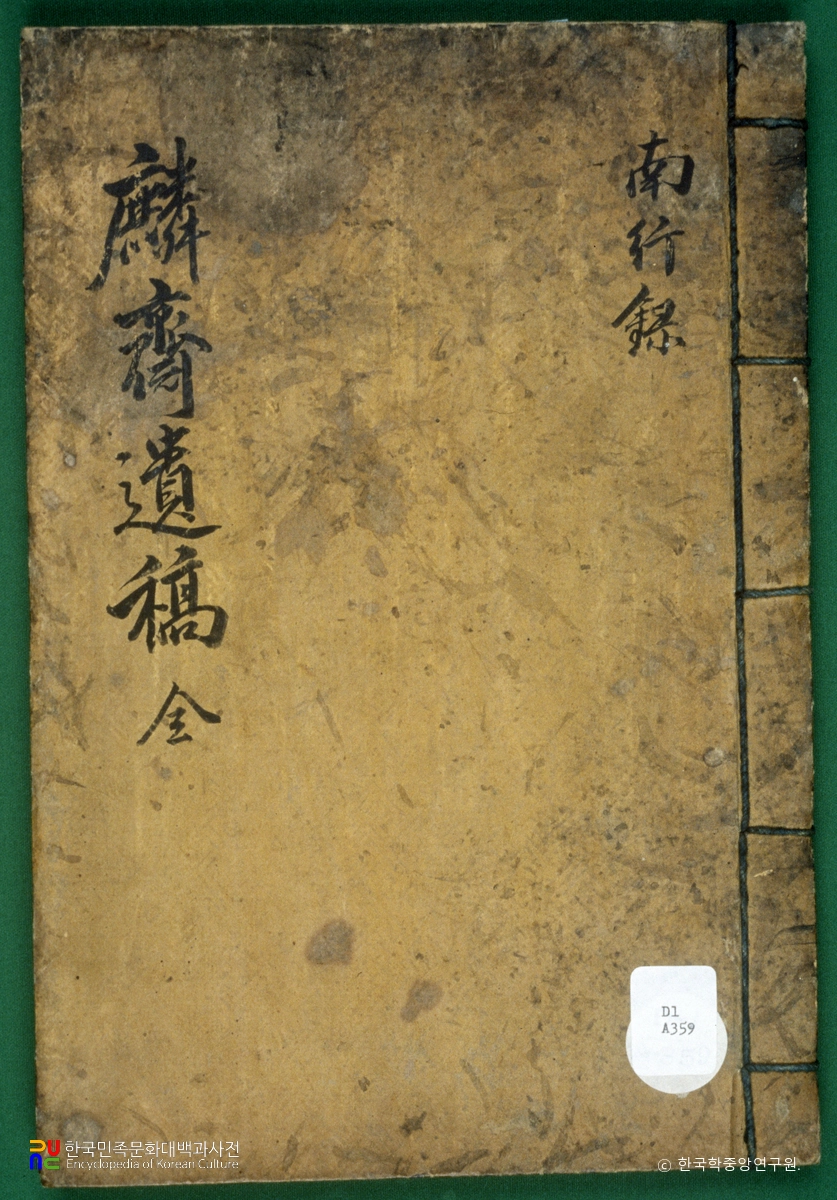 南行錄
麟齋遺稿 全
D1
A359
한국민족문화대백과사전
Encyclopedia of Korean Culture
© 한국학중앙연구원.